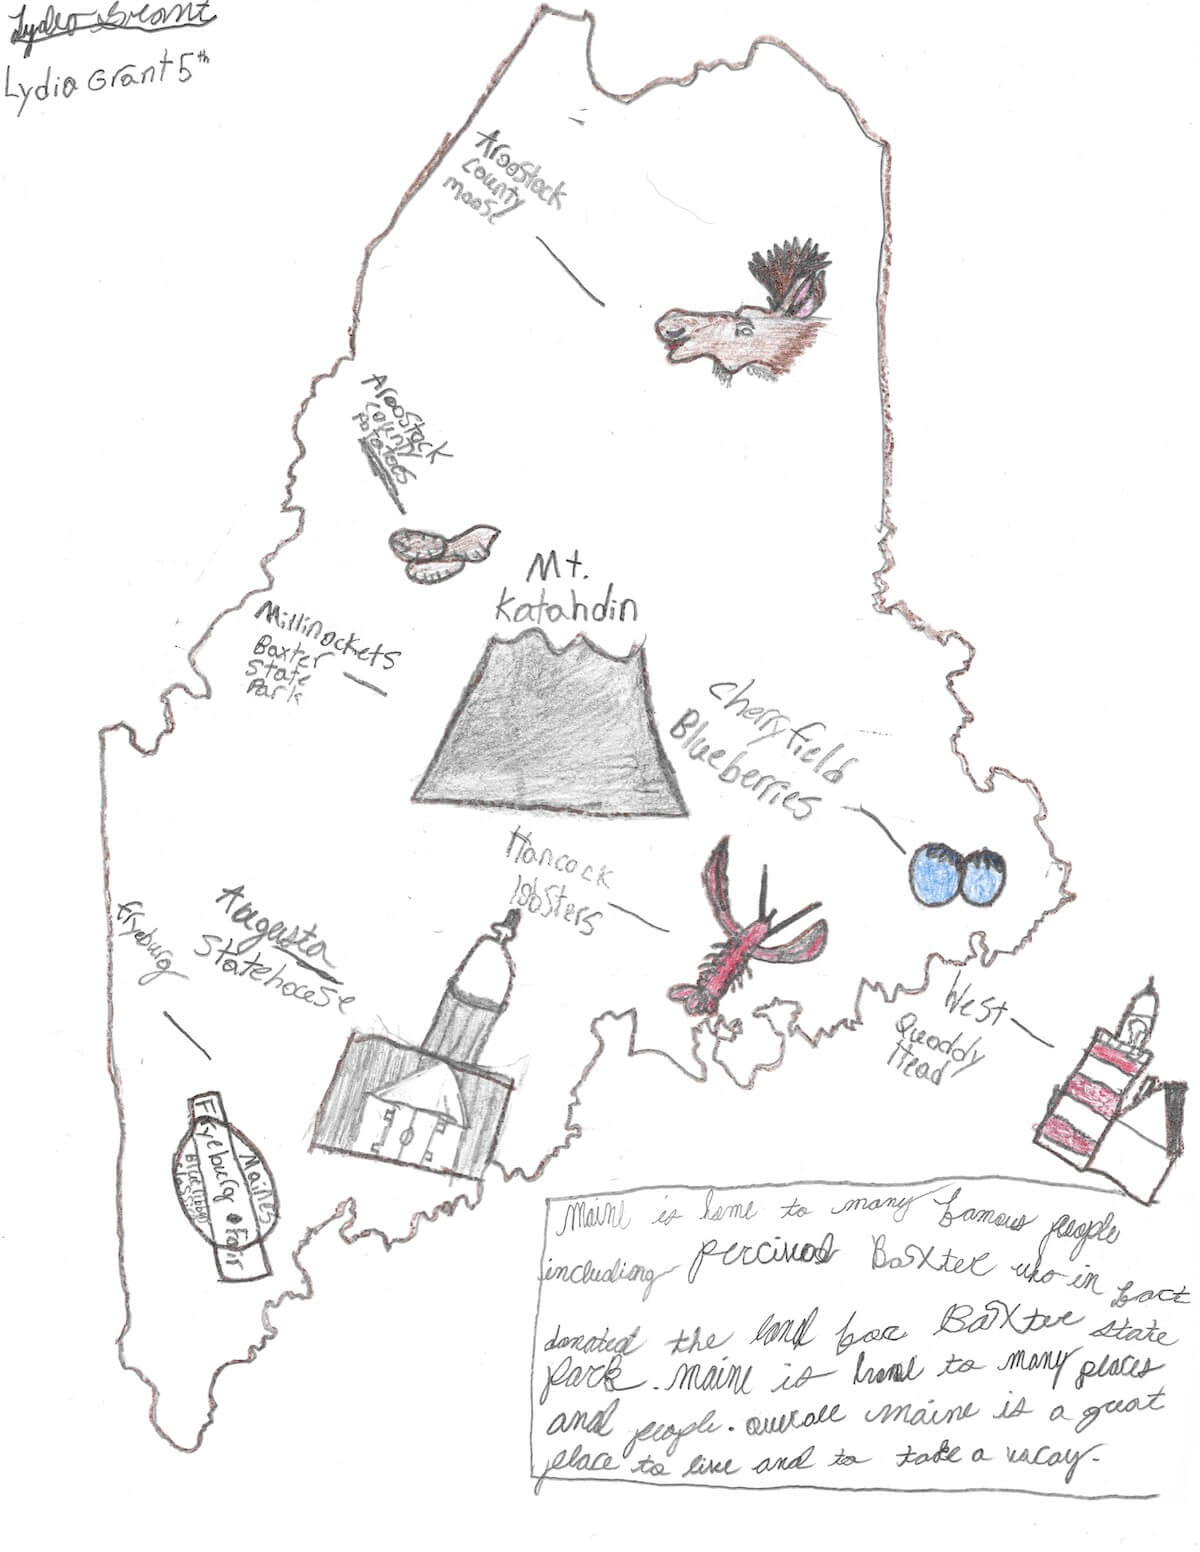 Lydia Grant
Lydia Grant 5th
Aroostock
county
moose
Aroostock
county
potatoes
Mt.
Katahdin
Millinockets
Baxter
State
Park
cherryfield
Blueberries
Hancock
lobsters
Augusta
Statehouse
fryeburg
West
Quoddy
Head
Fryeburg • Fair
Maines
Blue ribbon
classic
Maine is home to many famous people
including percival Baxter who in fact
donated the land for Baxter state
park. Maine is home to many places
and people. Overall Maine is a great
place to live and to take a vacay.